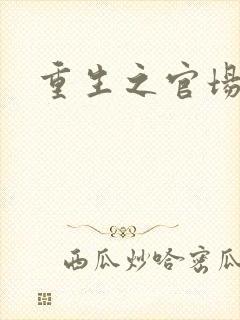 重生之官场
西瓜炒哈密瓜